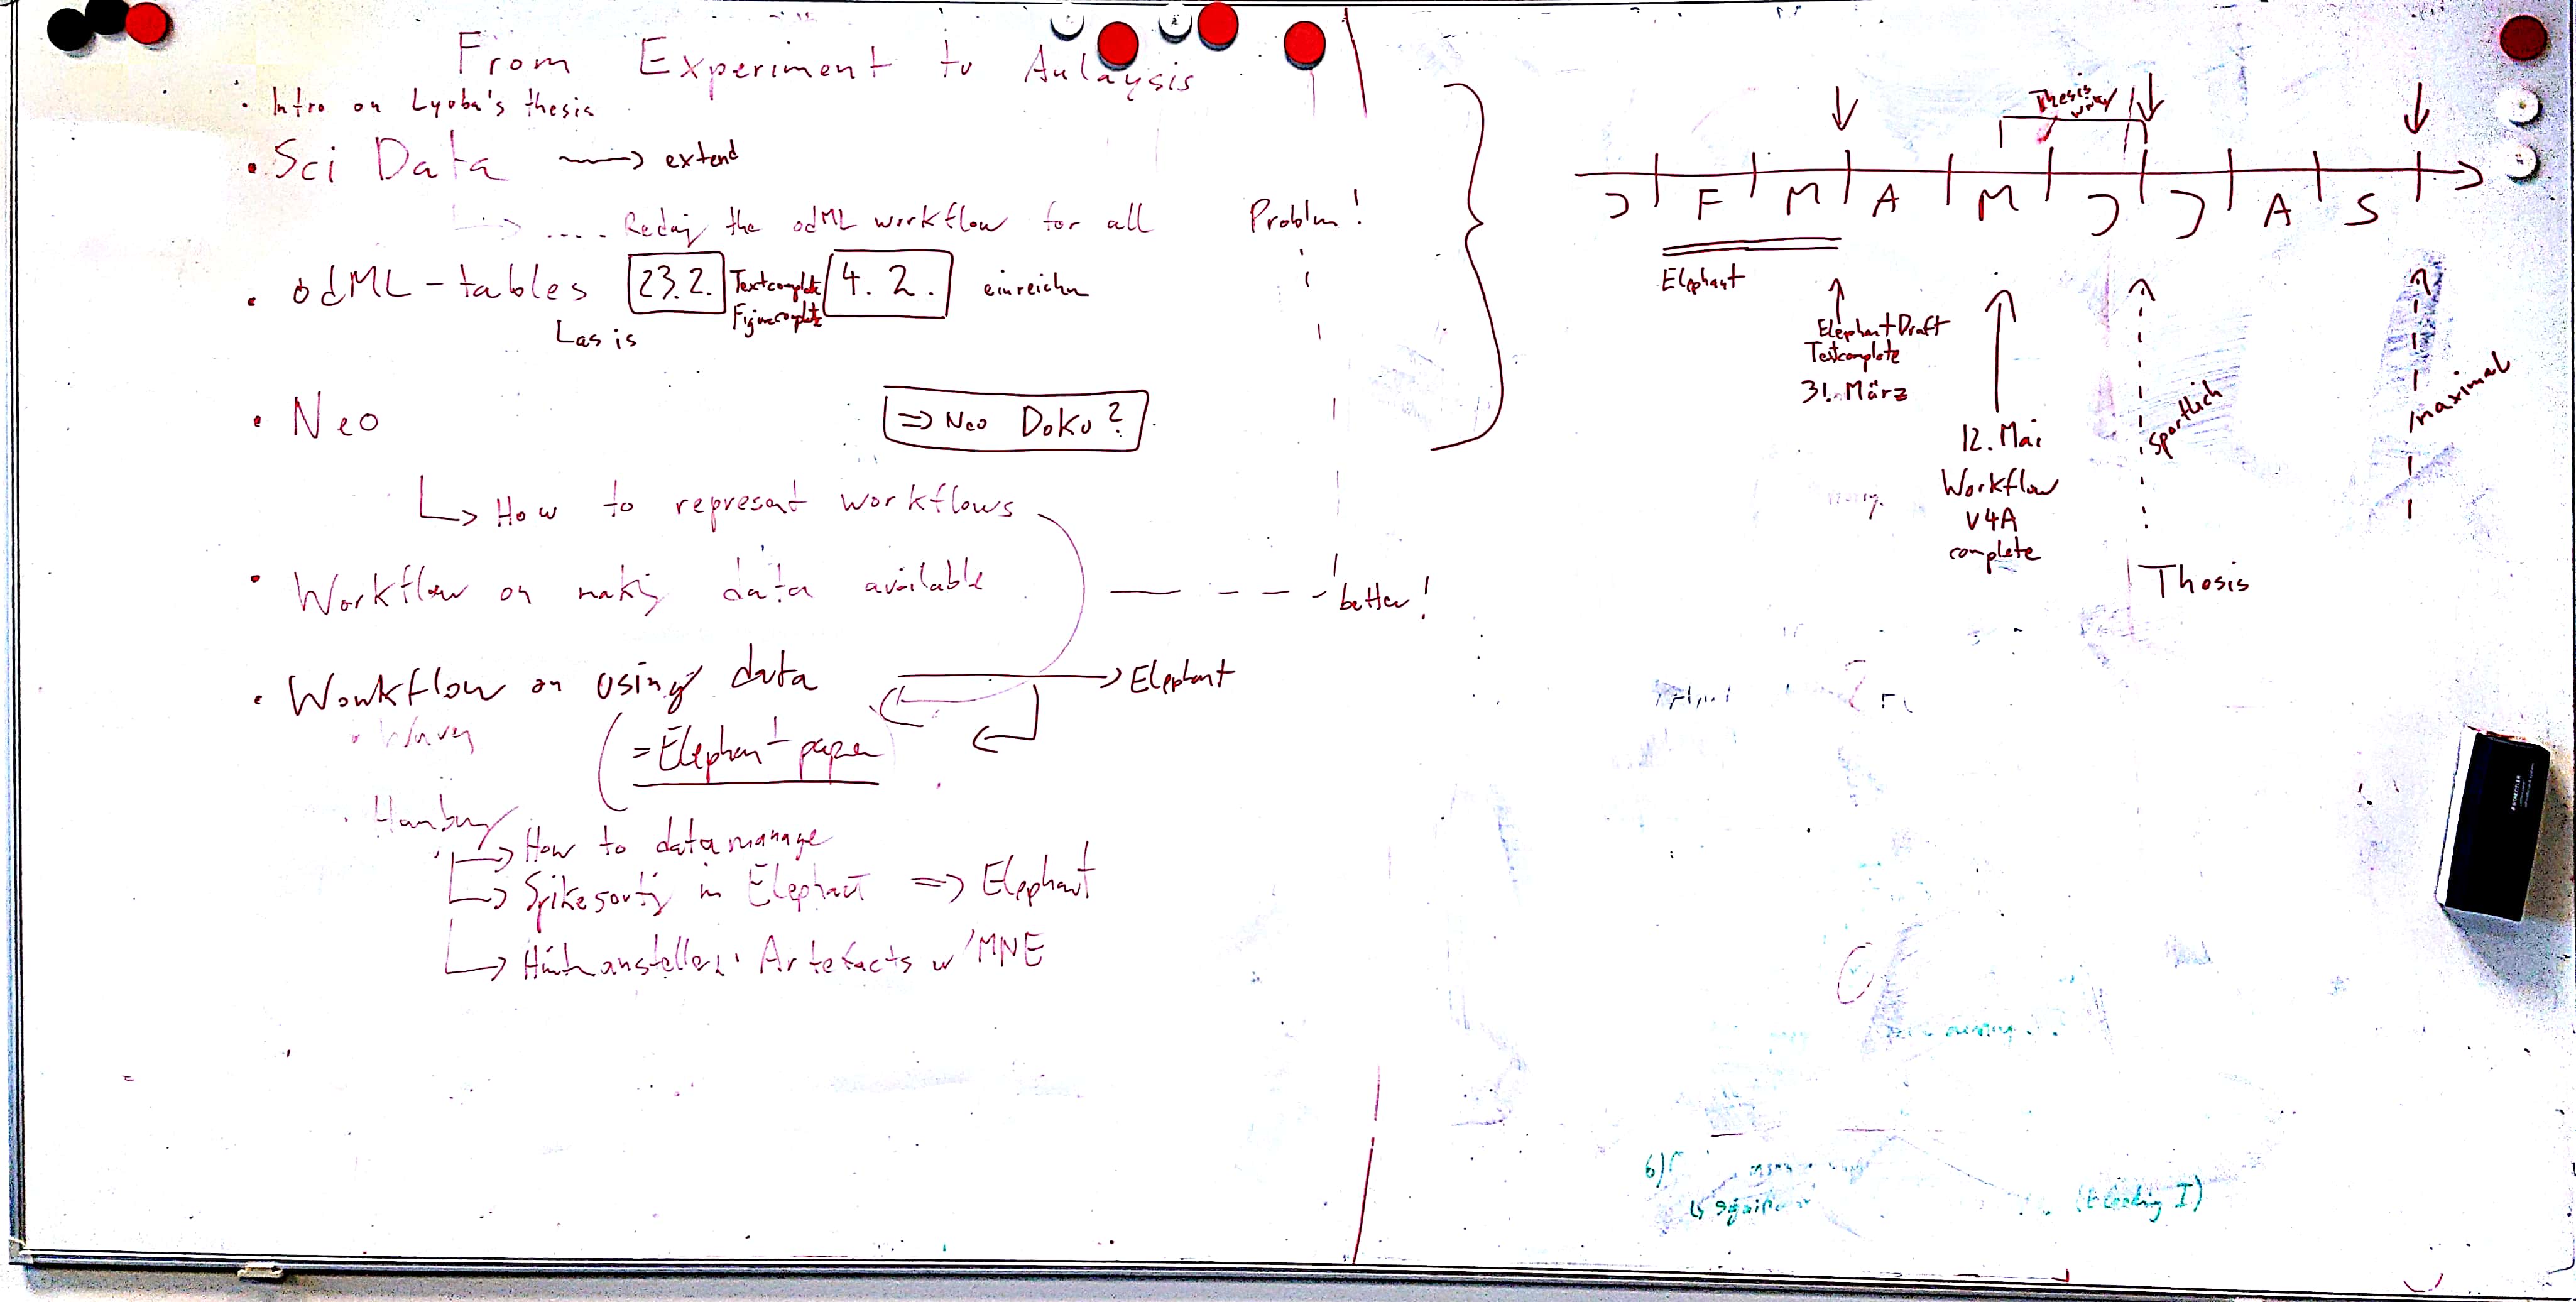 From Experiment to Aulaysis
• Intro on Lyuba's thesis
• Sci Data → extend
the odML workflow for all Problem!
• odML-tables 23.2. Textcomplete Figurecomplete 4.2. einreichen
as is
• Neo ⇒ Neo Doku?
How to represent workflows
• Workflow on making data available better!
• Workflow on using data → Elephant
(= Elephant paper
• Hamburg
→ How to data manage
→ Spikesorting in Elephant ⇒ Elephant
→ Artefacts w/ MNE
Thesis
J F M A M J J A S
Elephant
Elephant Draft
Textcomplete
31. März
12. Mai
Workflow
V4A
complete
sportlich
maximal
Thesis
6)